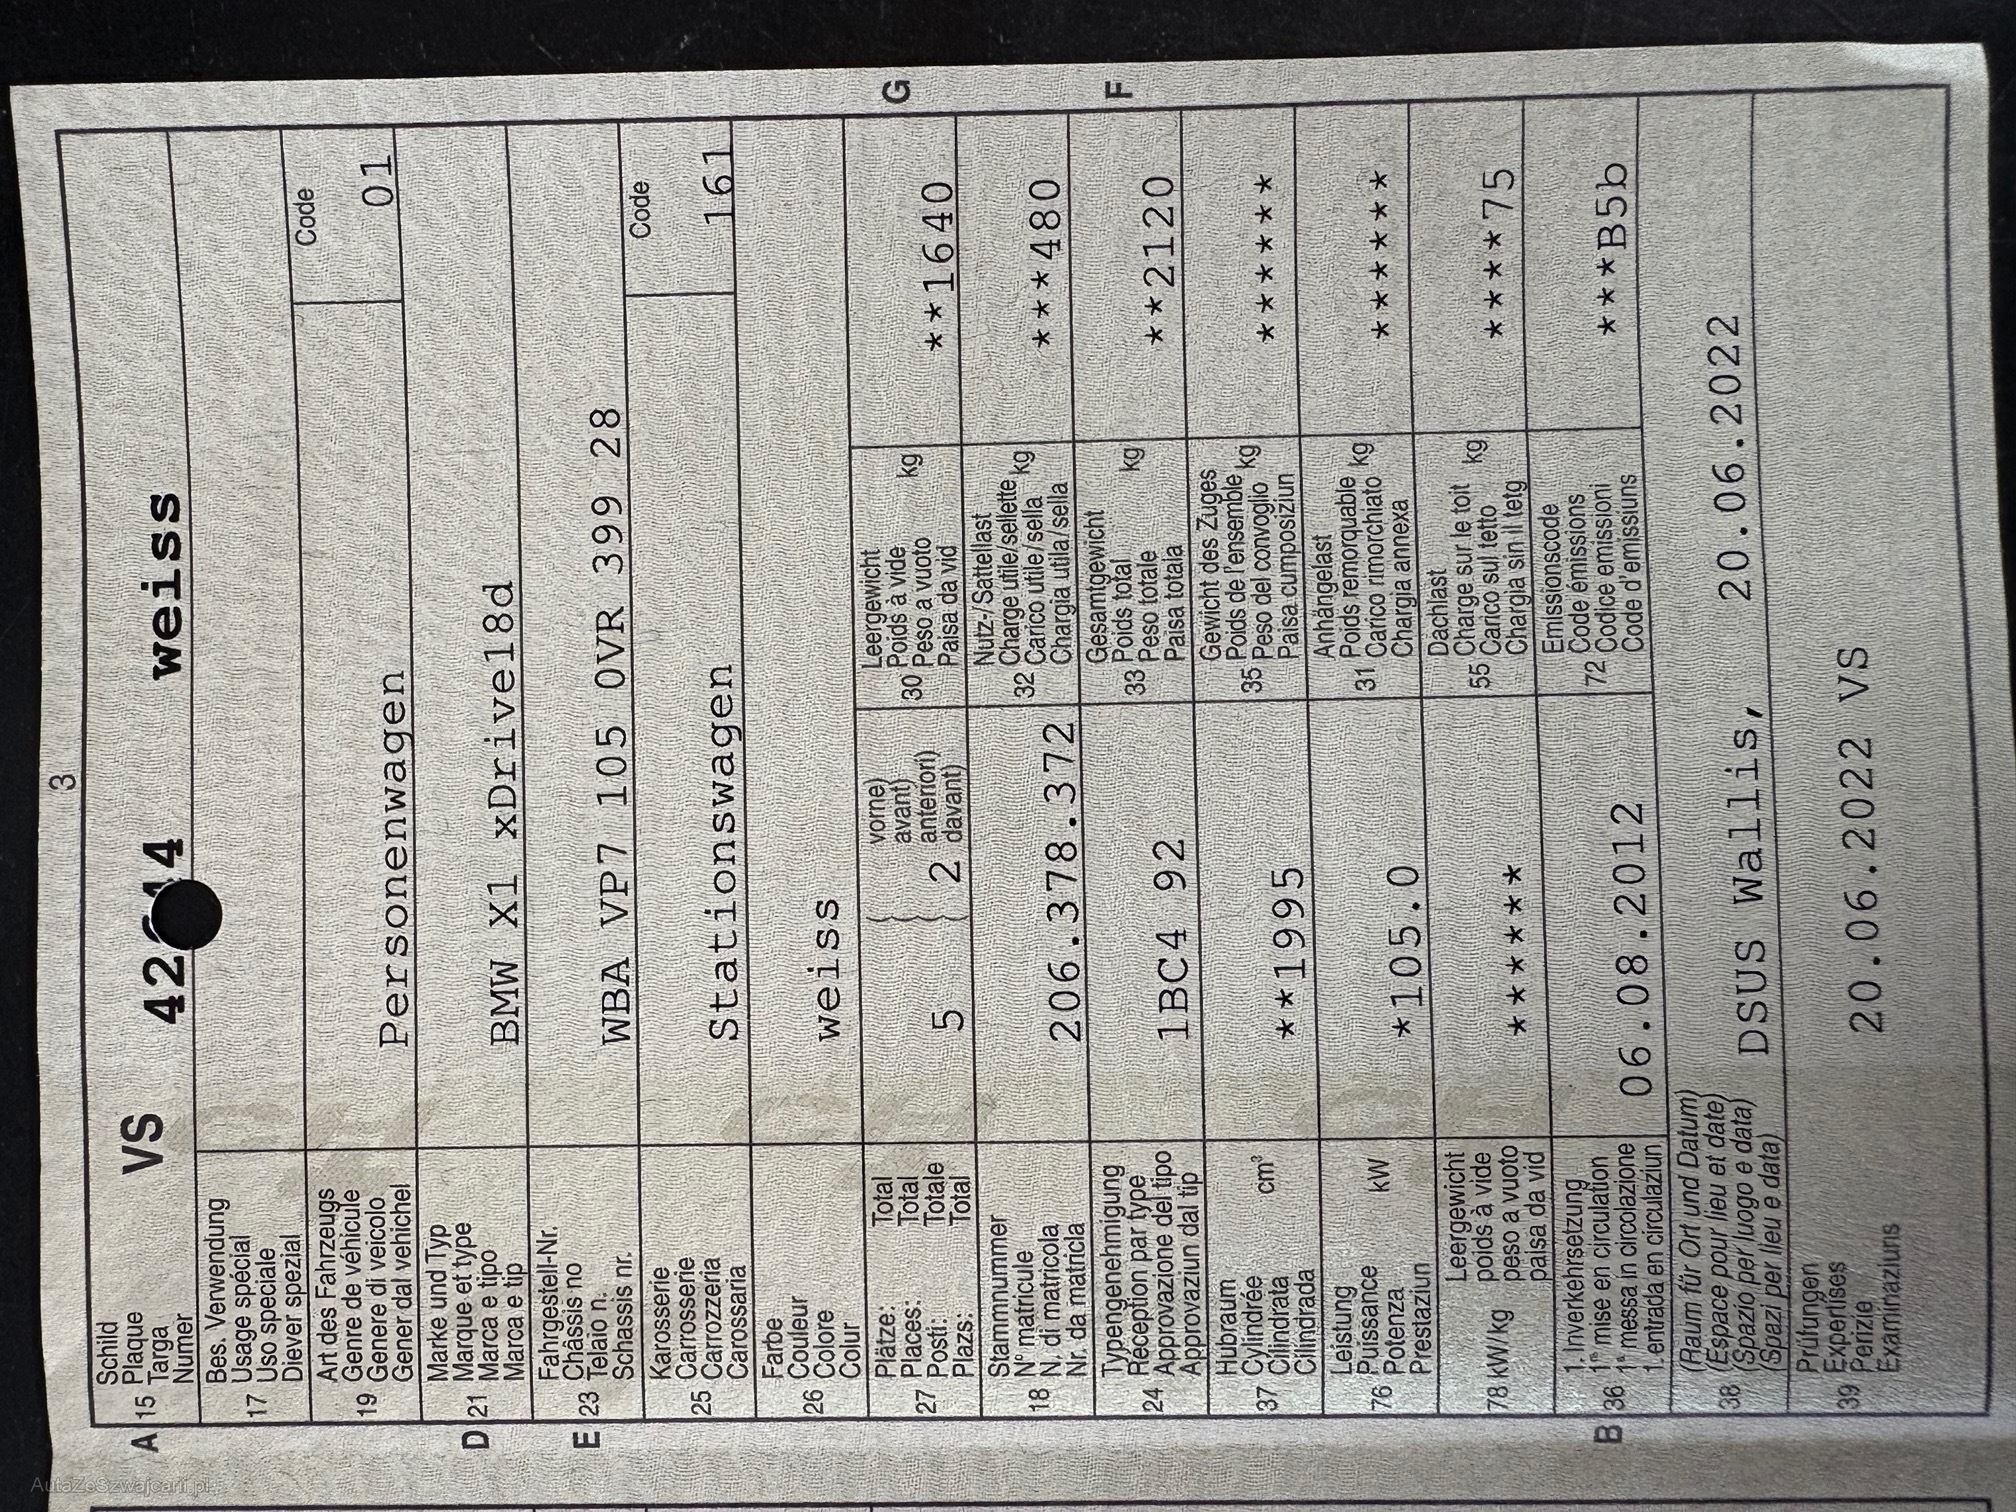 3
A 15 Schild
Plaque
Targa
Numer
VS 42 4 weiss
17 Bes. Verwendung
Usage spécial
Uso speciale
Diever spezial
19 Art des Fahrzeugs
Genre de véhicule
Genere di veicolo
Gener dal vehichel
Personenwagen
Code
01
D 21 Marke und Typ
Marque et type
Marca e tipo
Marca e tip
BMW X1 xDrive18d
E 23 Fahrgestell-Nr.
Châssis no
Telaio n.
Schassis nr.
WBA VP7 105 0VR 399 28
25 Karosserie
Carrosserie
Carrozzeria
Carossaria
Stationswagen
Code
161
26 Farbe
Couleur
Colore
Colur
weiss
27 Plätze: Total
Places: Total
Posti: Totale
Plazs: Total
5 2
vorne)
avant)
anteriori)
davant)
30 Leergewicht
Poids à vide
Peso a vuoto kg
Paisa da vid
**1640
G
18 Stammnummer
N° matricule
N. di matricola
Nr. da matricla
206.378.372
32 Nutz-/Sattellast
Charge utile/sellette
Carico utile/sella kg
Chargia utila/sella
***480
24 Typengenehmigung
Réception par type
Approvazione del tipo
Approvaziun dal tip
1BC4 92
33 Gesamtgewicht
Poids total kg
Peso totale
Paisa totala
**2120
F
37 Hubraum
Cylindrée
Cilindrata cm³
Cilindrada
**1995
35 Gewicht des Zuges
Poids de l'ensemble
Peso del convoglio kg
Paisa cumposiziun
******
76 Leistung
Puissance
Potenza kW
Prestaziun
*105.0
31 Anhängelast
Poids remorquable
Carico rimorchiato kg
Chargia annexa
******
78 kW/kg Leergewicht
poids à vide
peso a vuoto
paisa da vid
******
55 Dachlast
Charge sur le toit
Carico sul tetto kg
Chargia sin il tetg
****75
B 36 1. Inverkehrsetzung
1re mise en circulation
1a messa in circolazione
1. entrada en circulaziun
06.08.2012
72 Emissionscode
Code émissions
Codice emissioni
Code d'emissiuns
***B5b
38 (Raum für Ort und Datum)
(Espace pour lieu et date)
(Spazio per luogo e data)
(Spazi per lieu e data)
DSUS Wallis, 20.06.2022
39 Prüfungen
Expertises
Perizie
Examinaziuns
20.06.2022 VS
AutaZeSzwajcarii.pl